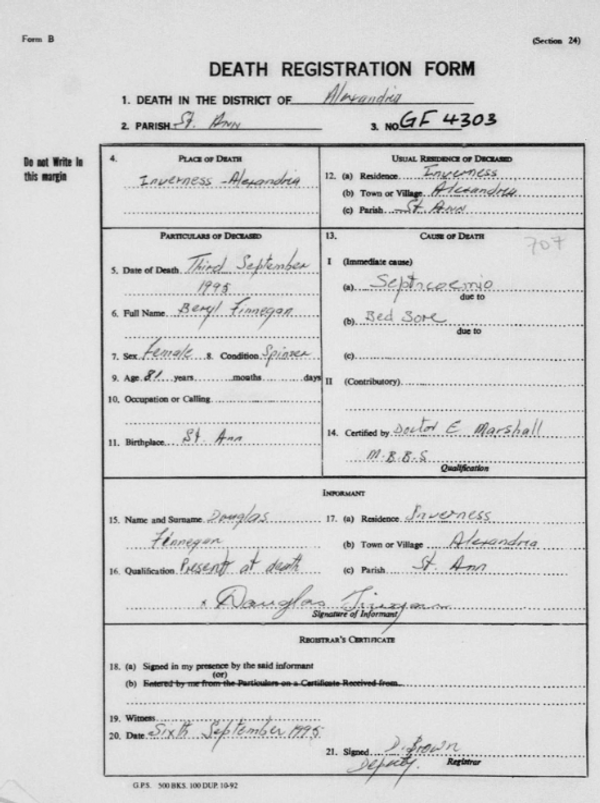 Form B
(Section 24)
DEATH REGISTRATION FORM
1. DEATH IN THE DISTRICT OF Alexandria
2. PARISH St. Ann 3. NO. GF 4303
Do not Write in
this margin
4. PLACE OF DEATH
Inverness - Alexandria
USUAL RESIDENCE OF DECEASED
12. (a) Residence Inverness
(b) Town or Village Alexandria
(c) Parish St. Ann
PARTICULARS OF DECEASED
5. Date of Death Third September
1995
6. Full Name Beryl Finnegan
7. Sex Female 8. Condition Spinner
9. Age 81 years months days
10. Occupation or Calling
11. Birthplace St. Ann
13. CAUSE OF DEATH
707
I (Immediate cause)
(a) Septicaemia
due to
(b) Bed Sore
due to
(c)
II (Contributory)
14. Certified by Doctor E Marshall
M.B.B.S
Qualification
INFORMANT
15. Name and Surname Douglas
Finnegan
16. Qualification Present at death
17. (a) Residence Inverness
(b) Town or Village Alexandria
(c) Parish St. Ann
x Douglas Finegan
Signature of Informant
REGISTRAR'S CERTIFICATE
18. (a) Signed in my presence by the said informant
(or)
(b) Entered by me from the Particulars on a Certificate Received from
19. Witness
20. Date Sixth September 1995
21. Signed D. Brown
Deputy Registrar
G.P.S. 500 BKS. 100 DUP. 10-92